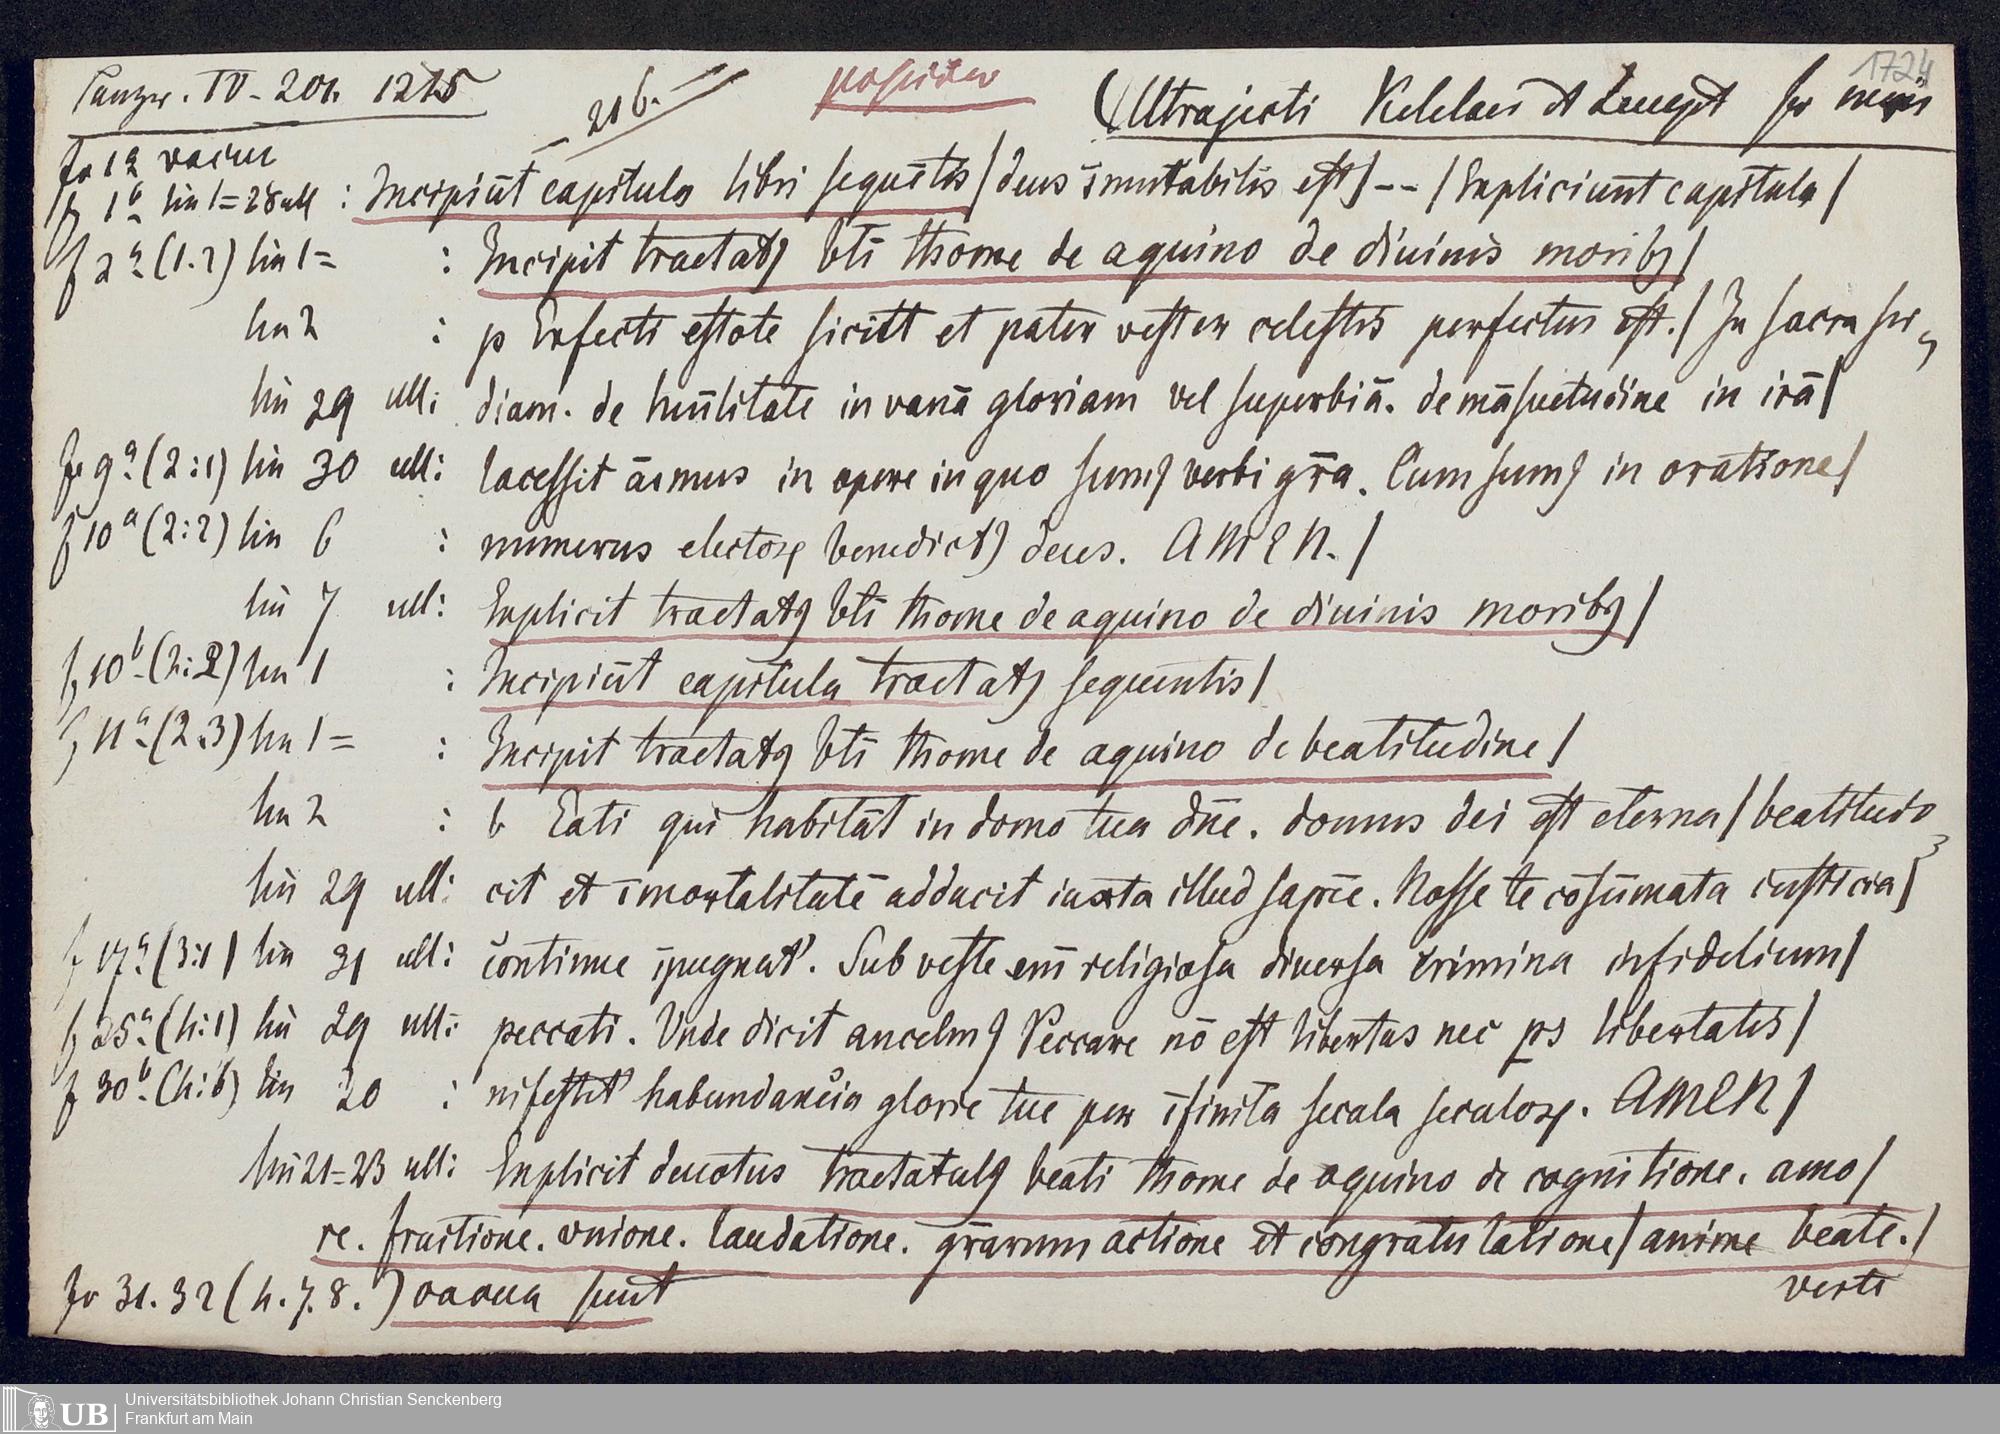 Panzer. IV - 201. 1215
216.
1724
Ultrajecti Ketelaer et Leempt
fo 1a vacua
f 1b lin 1=28 ult : Incipiūt capitula libri sequētis/ deus īmutabilis est/ -- / Expliciunt capitula/
f 2a (1.2) lin 1= : Incipit tractatꝯ bti thome de aquino de diuinis moribꝯ/
lin 2 : p Erfecti estote sicut et pater vester celestis perfectus est./ In sacra scr
lin 29 ult: diam. de hūilitate in vanā gloriam vel superbiā. de māsuetudine in irā/
fo 9a (2:1) lin 30 ult: lacessit āimus in opere in quo sumꝯ verbi gr̄a. Cum sumꝯ in oratione/
f 10a (2:2) lin 6 : numerus electoꝝ benedictꝯ deus. AMEN./
lin 7 ult: Explicit tractatꝯ bti thome de aquino de diuinis moribꝯ/
f 10b (2:2) lin 1 : Incipiūt capitula tractatꝯ sequentis/
f 11a (2.3) lin 1= : Incipit tractatꝯ bti thome de aquino de beatitudine/
lin 2 : b Eati qui habitāt in domo tua dn̄e. domus dei est eterna/ beatitudo
lin 29 ult: cit et īmortalitatē adducit iuxta illud sapiē. Nosse te cōsūmata iusticia/
f 17a (3:1) lin 31 ult: continue īpugnat. Sub veste em̄ religiosa diuersa crimina infidelium/
f 25a (4:1) lin 29 ult: peccati. Vnde dicit ancelmꝯ Peccare nō est libertas nec ps libertatis/
f 30b (4:6) lin 20 : nifestet habundancia glorie tue per īfinita secula seculoꝝ. AMEN/
lin 21=23 ult: Explicit deuotus tractatulꝯ beati thome de aquino de cognitione. amo/
re. fruitione. vnione. laudatione. gr̄arum actione et congratulatione/ anime beate./
fo 31. 32 (4. 7. 8.) vacua sunt
verte
UB
Universitätsbibliothek Johann Christian Senckenberg
Frankfurt am Main